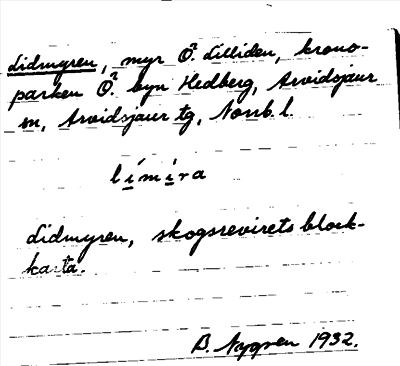 Lidmyren, myr Ö. Lilliden, krono-
parken Ö. byn Hedberg, Arvidsjaur
sn, Arvidsjaur tg, Norrb. l.
límíra
Lidmyren, skogsrevirets block-
karta.
B. Nygren 1932.